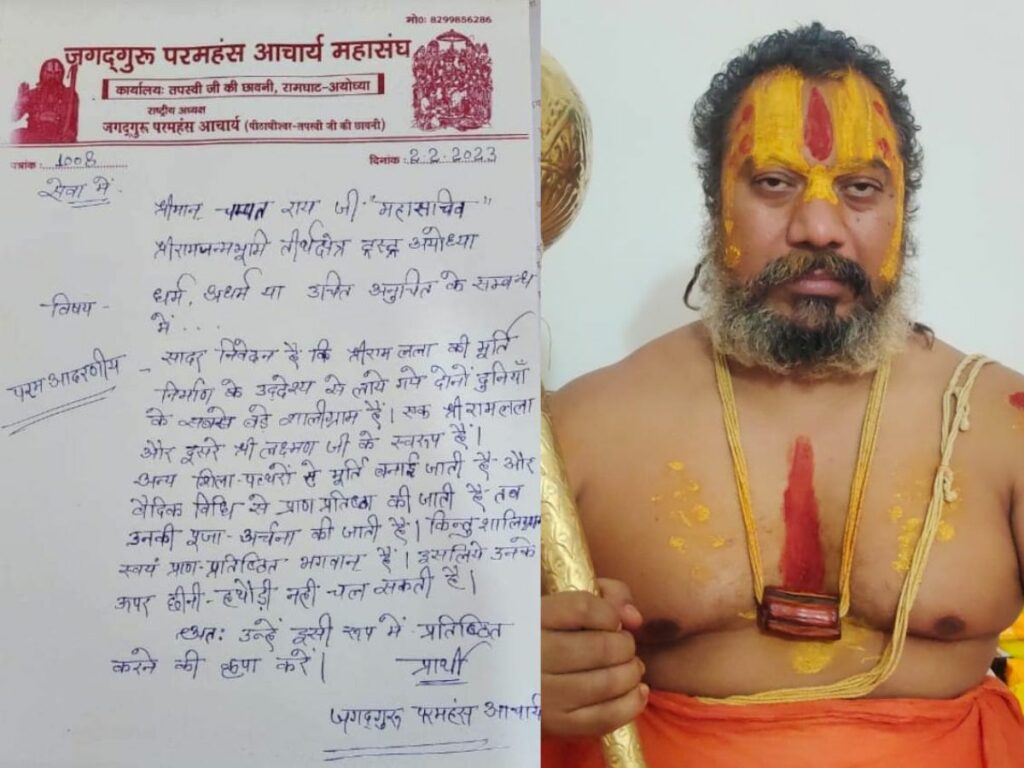 मो० : 8299856286
जगद्गुरू परमहंस आचार्य महासंघ
कार्यालयः तपस्वी जी की छावनी, रामघाट-अयोध्या
राष्ट्रीय अध्यक्ष
जगद्गुरू परमहंस आचार्य (पीठाधीश्वर-तपस्वी जी की छावनी)
पत्रांक : 1008
दिनांक : 2.2.2023
सेवा में
श्रीमान चम्पत राय जी "महासचिव"
श्रीरामजन्मभूमि तीर्थक्षेत्र ट्रस्ट अयोध्या
-विषय - धर्म, अधर्म या उचित अनुचित के सम्बन्ध
में...
परम आदरणीय - सादर निवेदन है कि श्रीराम लला की मूर्ति
निर्माण के उद्देश्य से लाये गये दोनों दुनियाँ
के सबसे बड़े शालीग्राम हैं। एक श्रीरामलला
और दूसरे श्री लक्ष्मण जी के स्वरूप हैं।
अन्य शिला-पत्थरों से मूर्ति बनाई जाती है और
वैदिक विधि से प्राण प्रतिष्ठा की जाती है तब
उनकी पूजा-अर्चना की जाती है। किन्तु शालिग्राम
स्वयं प्राण-प्रतिष्ठित भगवान हैं। इसलिये उनके
ऊपर छीनी-हथौड़ी नहीं चल सकती है।
अतः उन्हें इसी रूप में प्रतिष्ठित
करने की कृपा करें।
प्रार्थी
जगद्गुरू परमहंस आचार्य